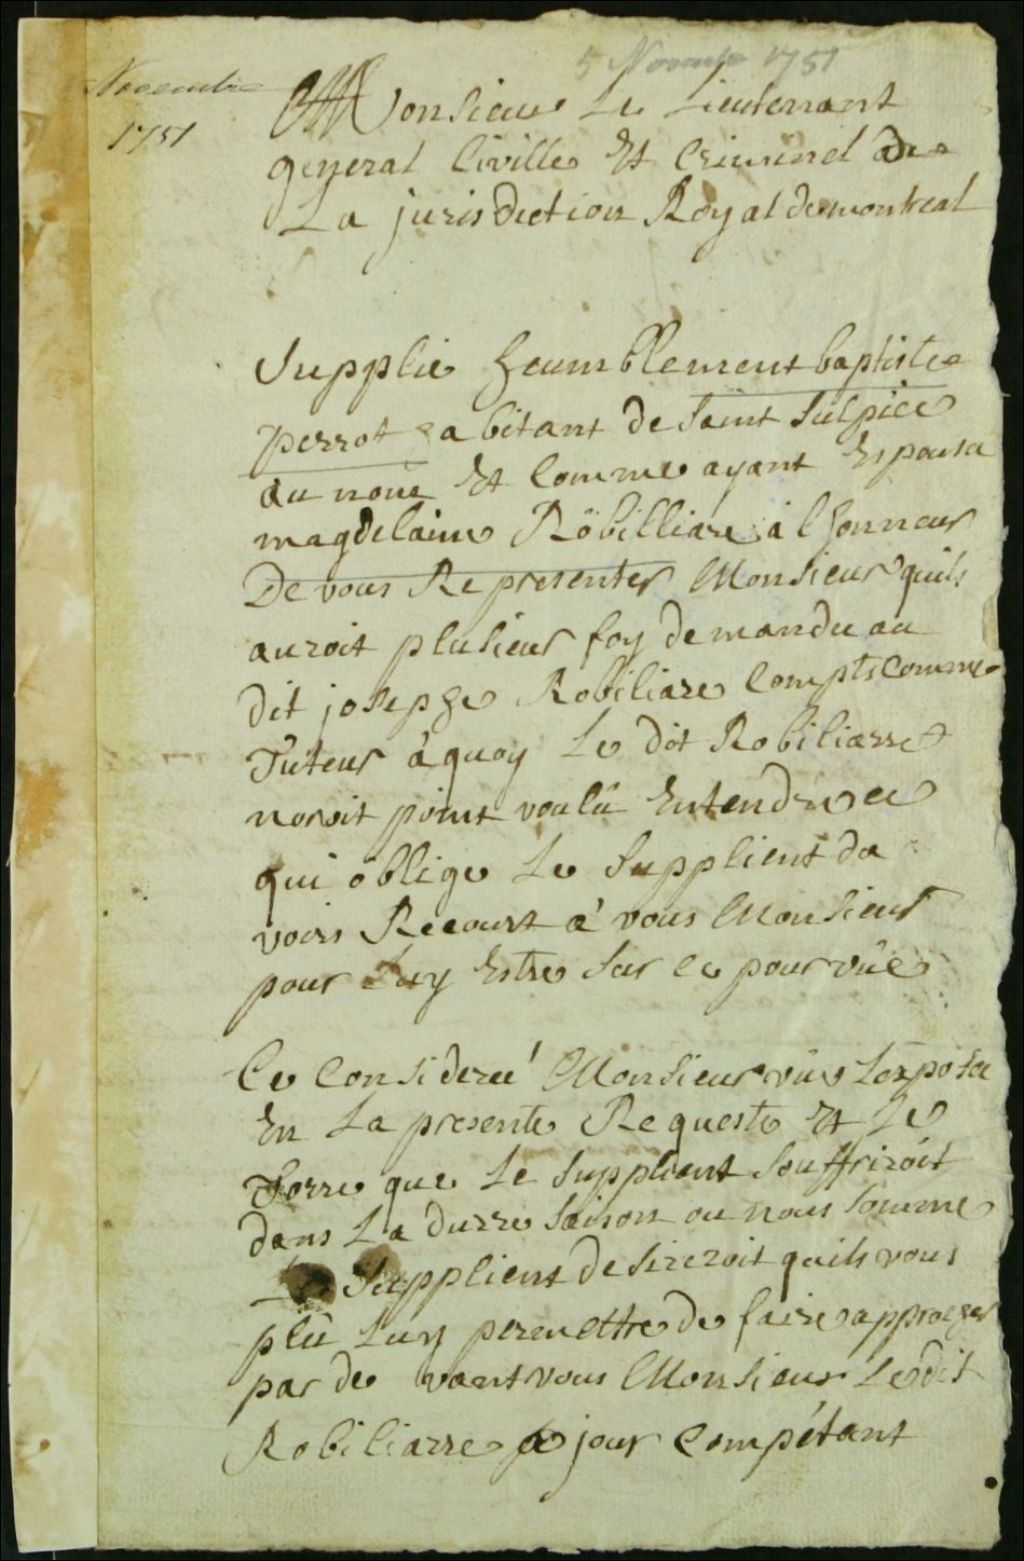 5 Novembre 1751
Novembre
1751
Monsieur Le Lieutenant
general Civille Et Criminel de
La jurisdiction Royal de montreal
Supplie heumblement baptiste
perrot habitant de Saint Sulpice
au nom Et Comme ayant Espousa
magdelaine Robilliare a lhonneur
De vous Representer Monsieur quils
auroit plusieur foy demandu au
dit josephe Robiliare Compts Comme
Tuteur a quoy Le dit Robiliarre
noroit point voulû Entendre ce
qui oblige Le Supplient da
voirs Recourt a vous Monsieur
pour Luy Estre Sur ce pourvûe
Ce Consideré Monsieur vûe Lexposee
En La presente Requeste Et Le
Torre que Le Supplient Souffriroit
dans La durre Saison ou nous Somme
Le Supplient desireroit quils vous
plû Luy permettre de faire approcher
par de vant vous Monsieur Le dit
Robiliarre a jour Compétant